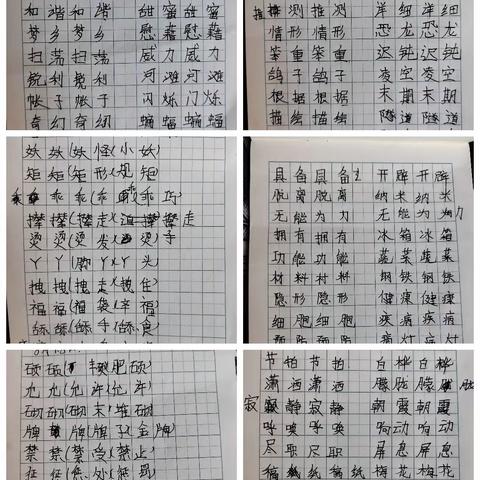 和谐 和谐 甜蜜 甜蜜
梦乡 梦乡 慰藉 慰藉
扫荡 扫荡 威力 威力
锐利 锐利 河滩 河滩
帐子 帐子 闪烁 闪烁
奇幻 奇幻 蝙蝠 蝙蝠
推测 推测 详细 详细
情形 情形 恐龙 恐龙
笨重 笨重 迟钝 迟钝
鸽子 鸽子 凌空 凌空
根据 根据 末期 末期
描绘 描绘 隧道 隧道
妖 妖(妖怪)(小妖)
矩 矩(矩形)(规矩)
乖 乖(乖)(乖巧)
撵 撵(撵走)(撵走)
烫 烫(烫发)(烫手)
丫 丫(脚丫)(丫头)
拽 拽(拽走)(拽住)
福 福(福袋)(幸福)
舔 舔(舔手)(舔食)
具备 具备 开辟 开辟
脱离 脱离 纳米 纳米
无能为力 无能为力
拥有 拥有 冰箱 冰箱
功能 功能 蔬菜 蔬菜
材料 材料 钢铁 钢铁
隐形 隐形 健康 健康
细胞 细胞 疾病 疾病
病灶 病灶
硕 硕(肥硕)
允 允(允许)(允许)
砌 砌
牌 牌(牌子)(金牌)
禁 禁(禁受)(禁止)
节拍 节拍 白桦 白桦
潇洒 潇洒 朦胧 朦胧
寂静 寂静 朝霞 朝霞
呼唤 呼唤 响动 响动
尽职 尽职 屏息 屏息
稿纸 稿纸 梅花 梅花